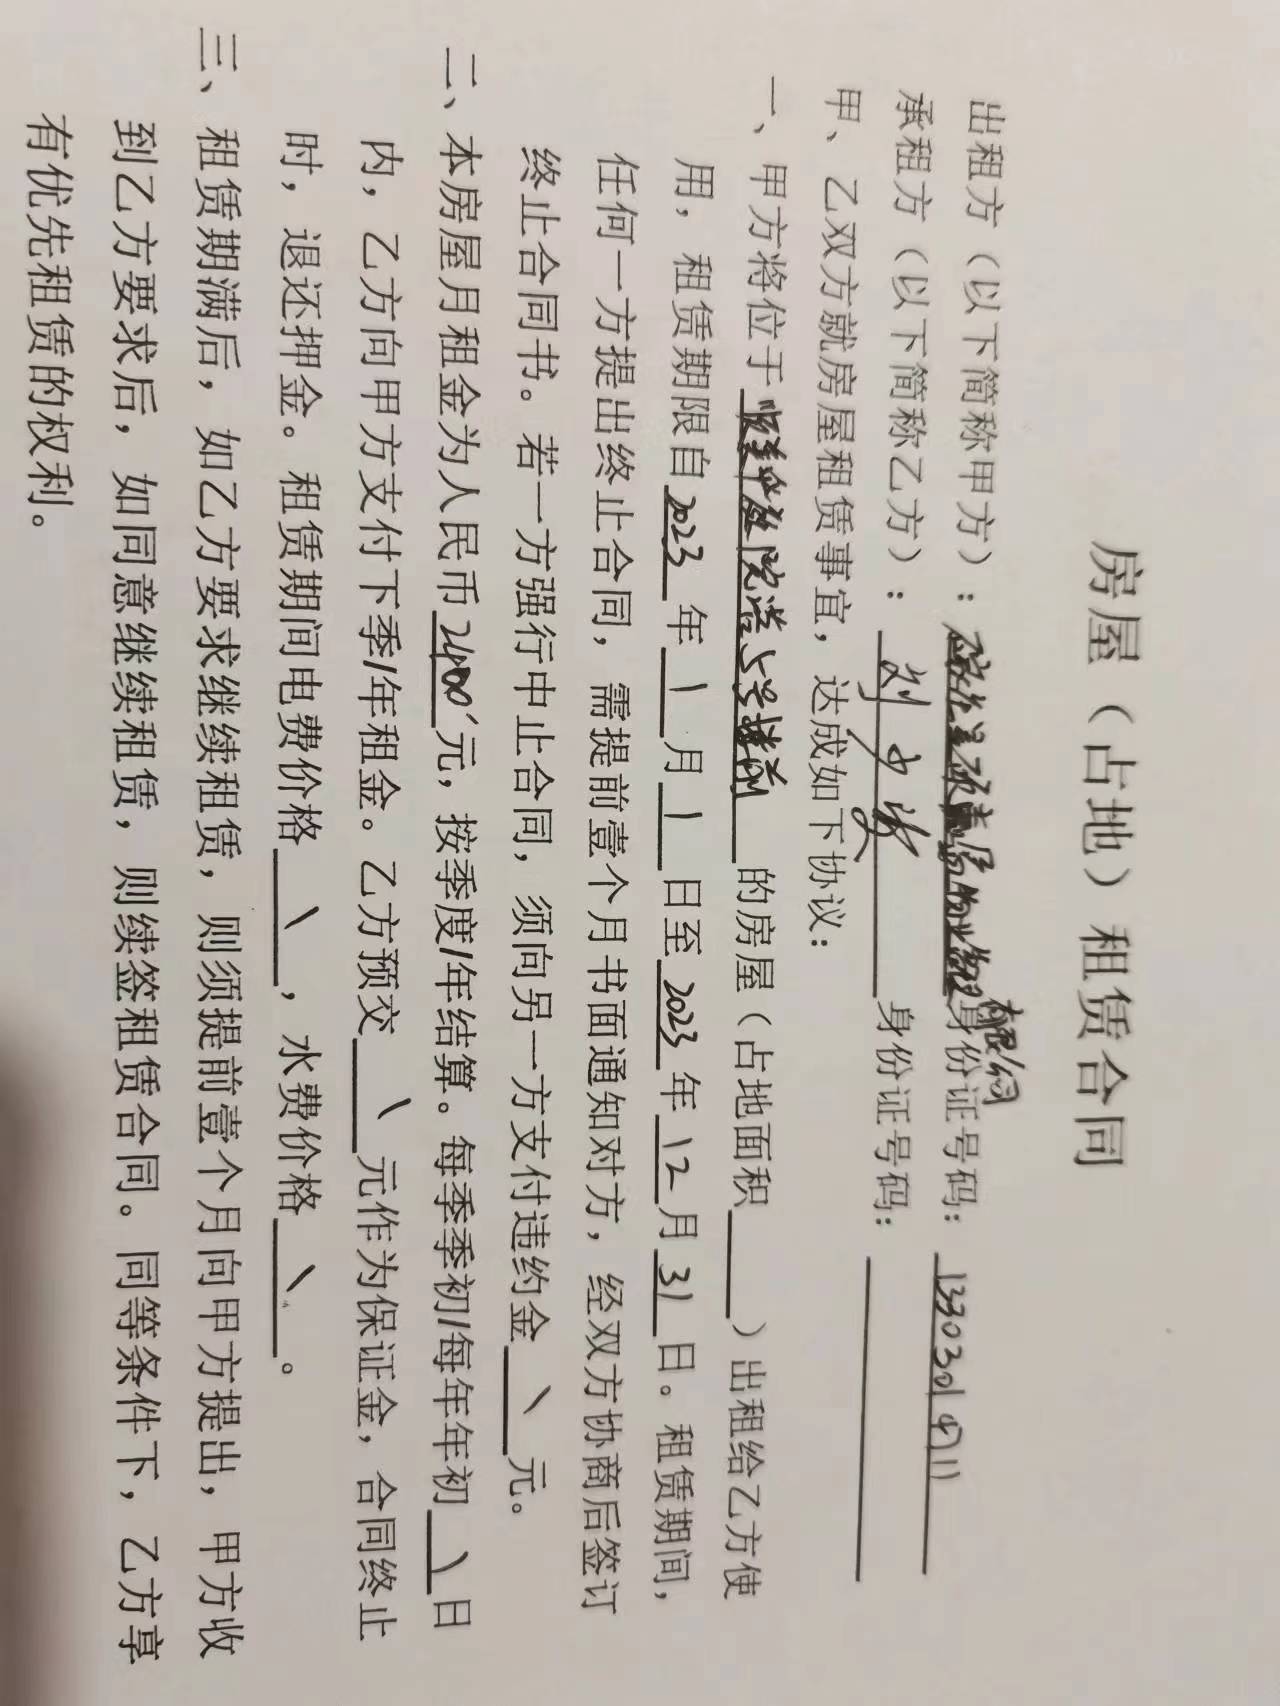 房屋（占地）租赁合同
出租方（以下简称甲方）：物业 有限公司 身份证号码：13303019711
承租方（以下简称乙方）：刘 身份证号码：
甲、乙双方就房屋租赁事宜，达成如下协议：
一、甲方将位于 院 5号楼前 的房屋（占地面积 ）出租给乙方使
用，租赁期限自2023年1月1日至2023年12月31日。租赁期间，
任何一方提出终止合同，需提前壹个月书面通知对方，经双方协商后签订
终止合同书。若一方强行中止合同，须向另一方支付违约金\元。
二、本房屋月租金为人民币2400元，按季度/年结算。每季季初/每年年初\日
内，乙方向甲方支付下季/年租金。乙方预交\元作为保证金，合同终止
时，退还押金。租赁期间电费价格\，水费价格\。
三、租赁期满后，如乙方要求继续租赁，则须提前壹个月向甲方提出，甲方收
到乙方要求后，如同意继续租赁，则续签租赁合同。同等条件下，乙方享
有优先租赁的权利。